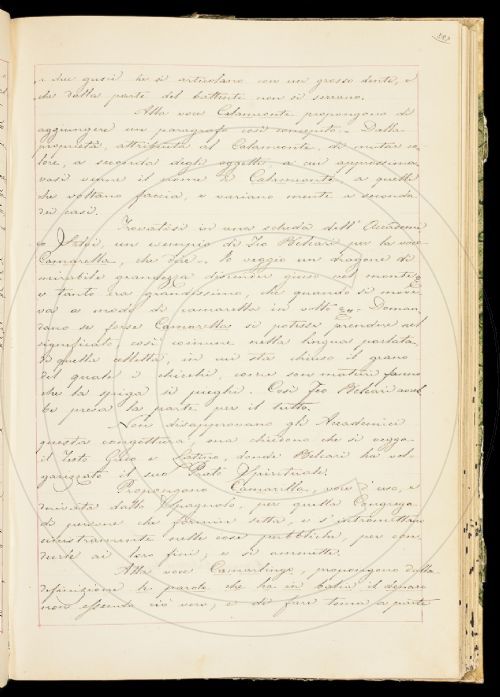 i due gusci che si articolano con un grosso dente, e
che dalla parte del battente non si serrano.
Alla voce Calamonte propongono di
aggiungere un paragrafo così concepito - Dalla
proprietà, attribuita al Calamonte, di mutar co-
lore, a seconda degli oggetti a cui approssima
vasi venne il nome di Calamonte a quelli
che voltano faccia, e variano mente a seconda
dei casi.
Trovatasi in una scheda dell'Accademico
un esempio di Feo Belcari per la voce
Camarella, che dice, Io veggio un dragone di
mirabile grandezza discender giuso nel monte;
e tanto era grandissimo, che quando si move
va a modo di camarelle in volte - Doman
dano se forse Camarella si potesse prendere nel
significato così comune nella lingua parlata,
di quella celletta, in cui sta chiuso il grano
del quale i chicchi, come son maturi fanno
che la spiga si pieghi. Così Feo Belcari avreb
be presa la parte per il tutto.
Non disapprovano gli Accademici
questa congettura, ma chiedono che si vegga
il Testo Greco e Latino, donde Belcari ha vol-
garizzato il suo Prato Spirituale.
Propongono Camarilla, voce d'uso, e
derivata dallo Spagnolo, per quella Congrega
di persone che formin setta, e s'intromettano
nelle cose pubbliche, per con
durle ai loro fini; e si ammette.
Alla voce Camarlingo, propongono dalla
definizione le parole che ha in balia il denaro
non essendo ciò vero; e di fare tema a parte